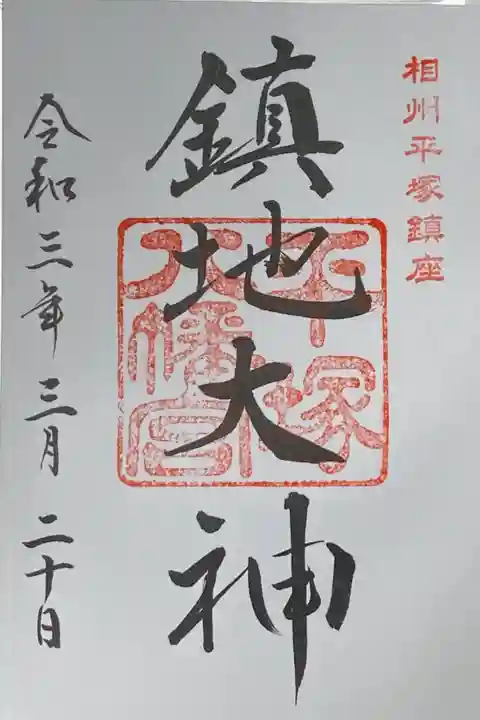 相州平塚鎮座
鎮地大神
平塚
八幡宮
令和三年三月二十日